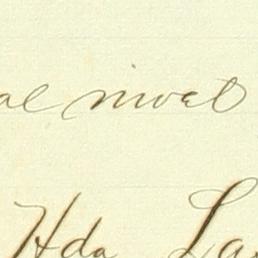 al nivel
Hda La